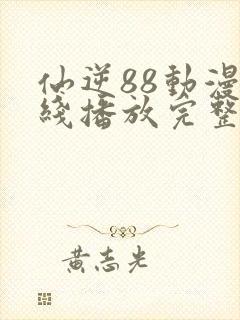 仙逆88動漫
綫播放完整
黄志光